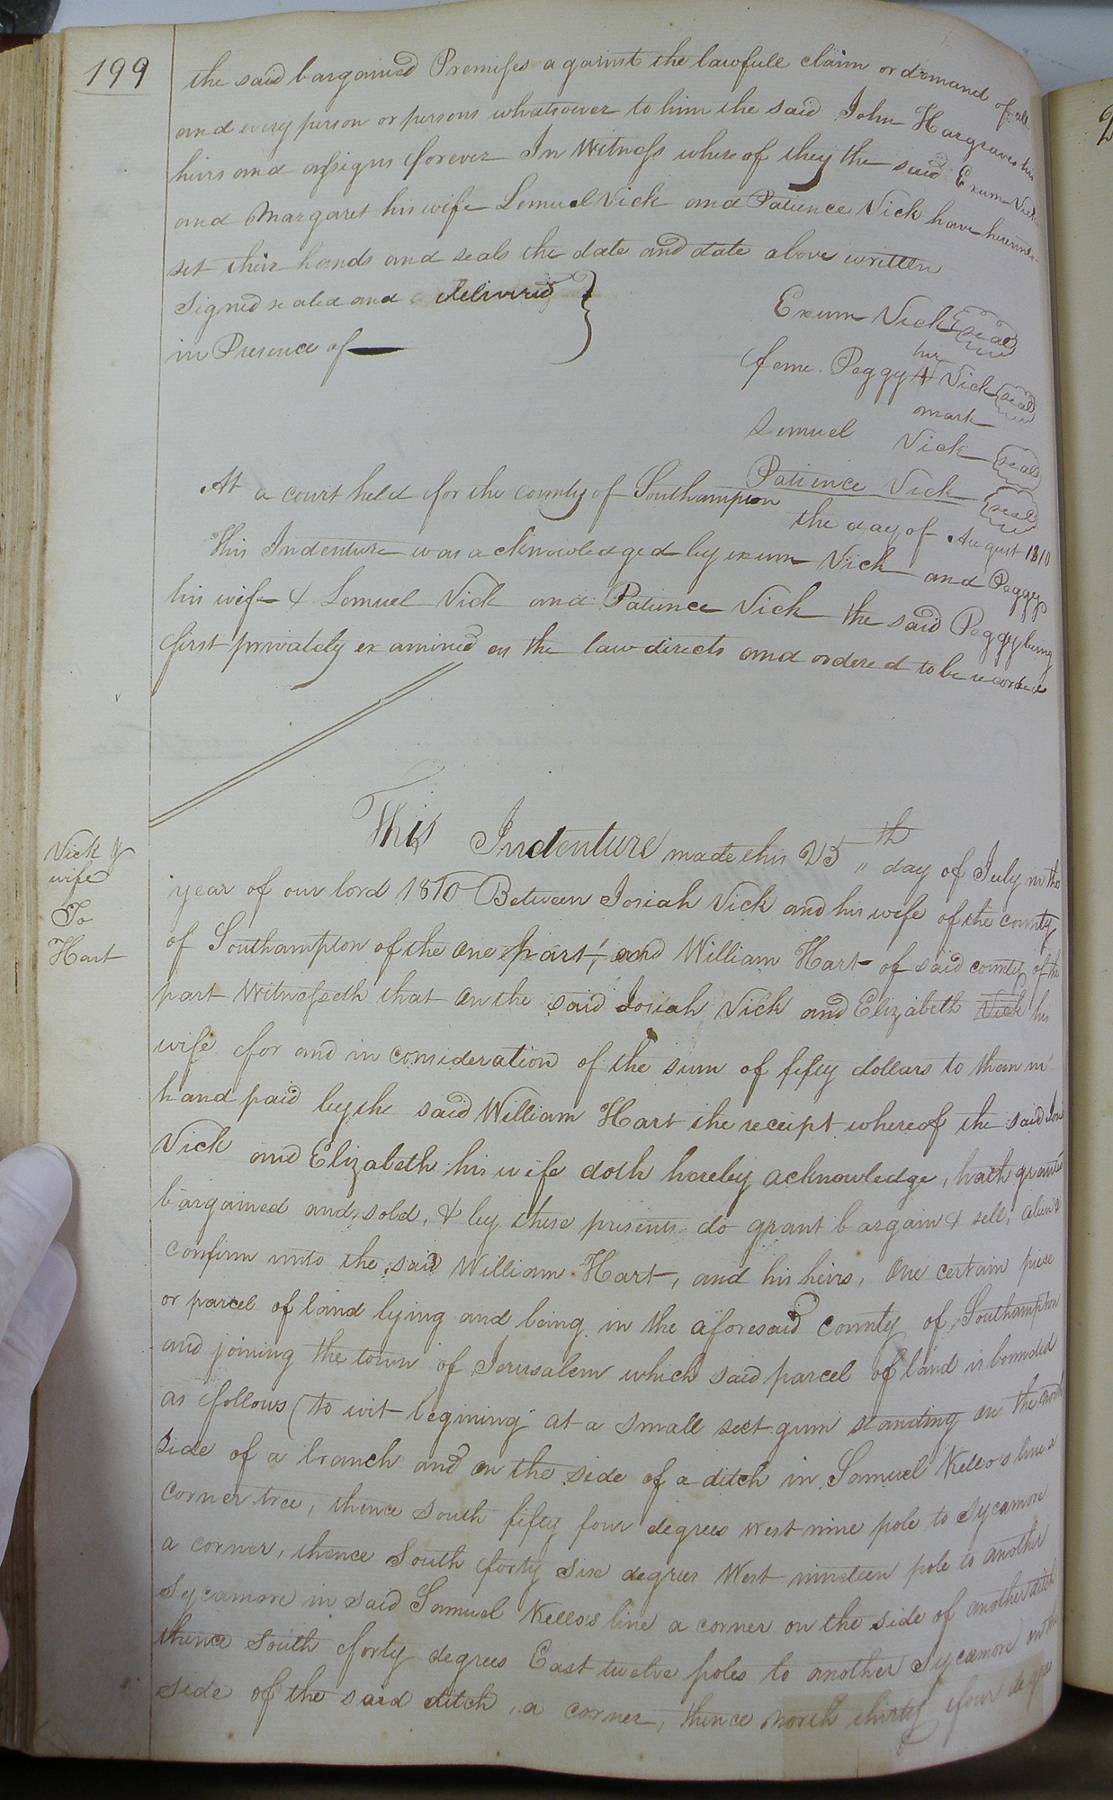 199
the said bargained Premises against the lawfull claim or demand of all
and every person or persons whatsoever to him the said John Hargraves his
heirs and assigns forever In Witness whereof they the said Exum Vick
and Margaret his wife Lemuel Vick and Patience Vick have hereunto
set their hands and seals the date and date above written
Signed sealed and delivered
in Presence of
Exum Vick seal
her
feme. Peggy + Vick seal
mark
Lemuel Vick seal
Patience Vick seal
At a court held for the county of Southampton the day of August 1810
This Indenture was acknowledged by exum Vick and Peggy
his wife & Lemuel Vick and Patience Vick the said Peggy being
first privately examined as the law directs and ordered to be recorded
Vick &
wife
To
Hart
This Indenture made this 25th day of July in the
year of our lord 1810 Between Josiah Vick and his wife of the county
of Southampton of the one part, and William Hart of said county of the
part Witnesseth that on the said Josiah Vick and Elizabeth Vick his
wife for and in consideration of the sum of fifty dollars to them in
hand paid by the said William Hart the receipt whereof the said Josi
Vick and Elizabeth his wife doth hereby acknowledge, hath granted
bargained and sold, & by these presents do grant bargain & sell, alien &
confirm unto the said William Hart, and his heirs, One certain piece
or parcel of land lying and being in the aforesaid county of Southampton
and joining the town of Jerusalem which said parcel of land is bounded
as follows (to wit begining at a small sect gum standing on the north
side of a branch and on the side of a ditch in Samuel Kello's line a
corner tree, thence South fifty four degrees West nine pole to Sycamore
a corner, thence South forty six degrees West nineteen pole to another
Sycamore in said Samuel Kello's line a corner on the side of another ditch
thence South forty degrees East twelve poles to another Sycamore on the
side of the said ditch, a corner, thence North thirty four degrees